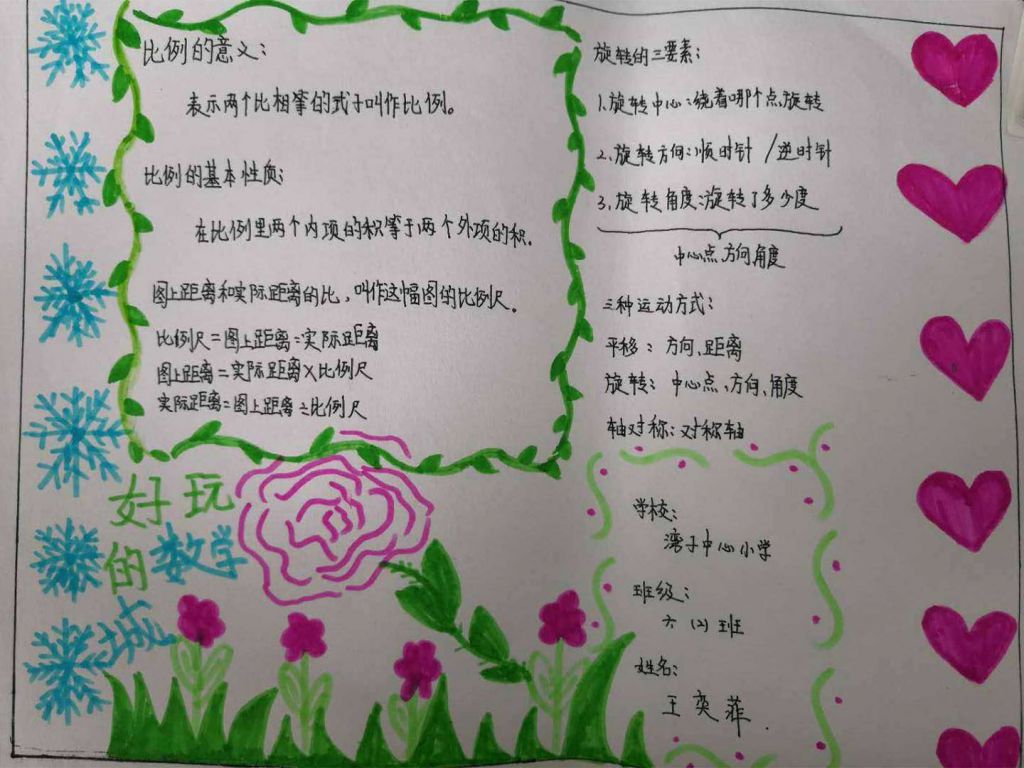 比例的意义：
表示两个比相等的式子叫作比例。
比例的基本性质：
在比例里两个内项的积等于两个外项的积.
图上距离和实际距离的比，叫作这幅图的比例尺.
比例尺=图上距离÷实际距离
图上距离=实际距离×比例尺
实际距离=图上距离÷比例尺
好玩
的数学
城
旋转的三要素：
1.旋转中心：绕着哪个点旋转
2.旋转方向：顺时针/逆时针
3.旋转角度：旋转了多少度
中心点、方向、角度
三种运动方式：
平移：方向、距离
旋转：中心点、方向、角度
轴对称：对称轴
学校：
湾子中心小学
班级：
六(2)班
姓名：
王奕菲.